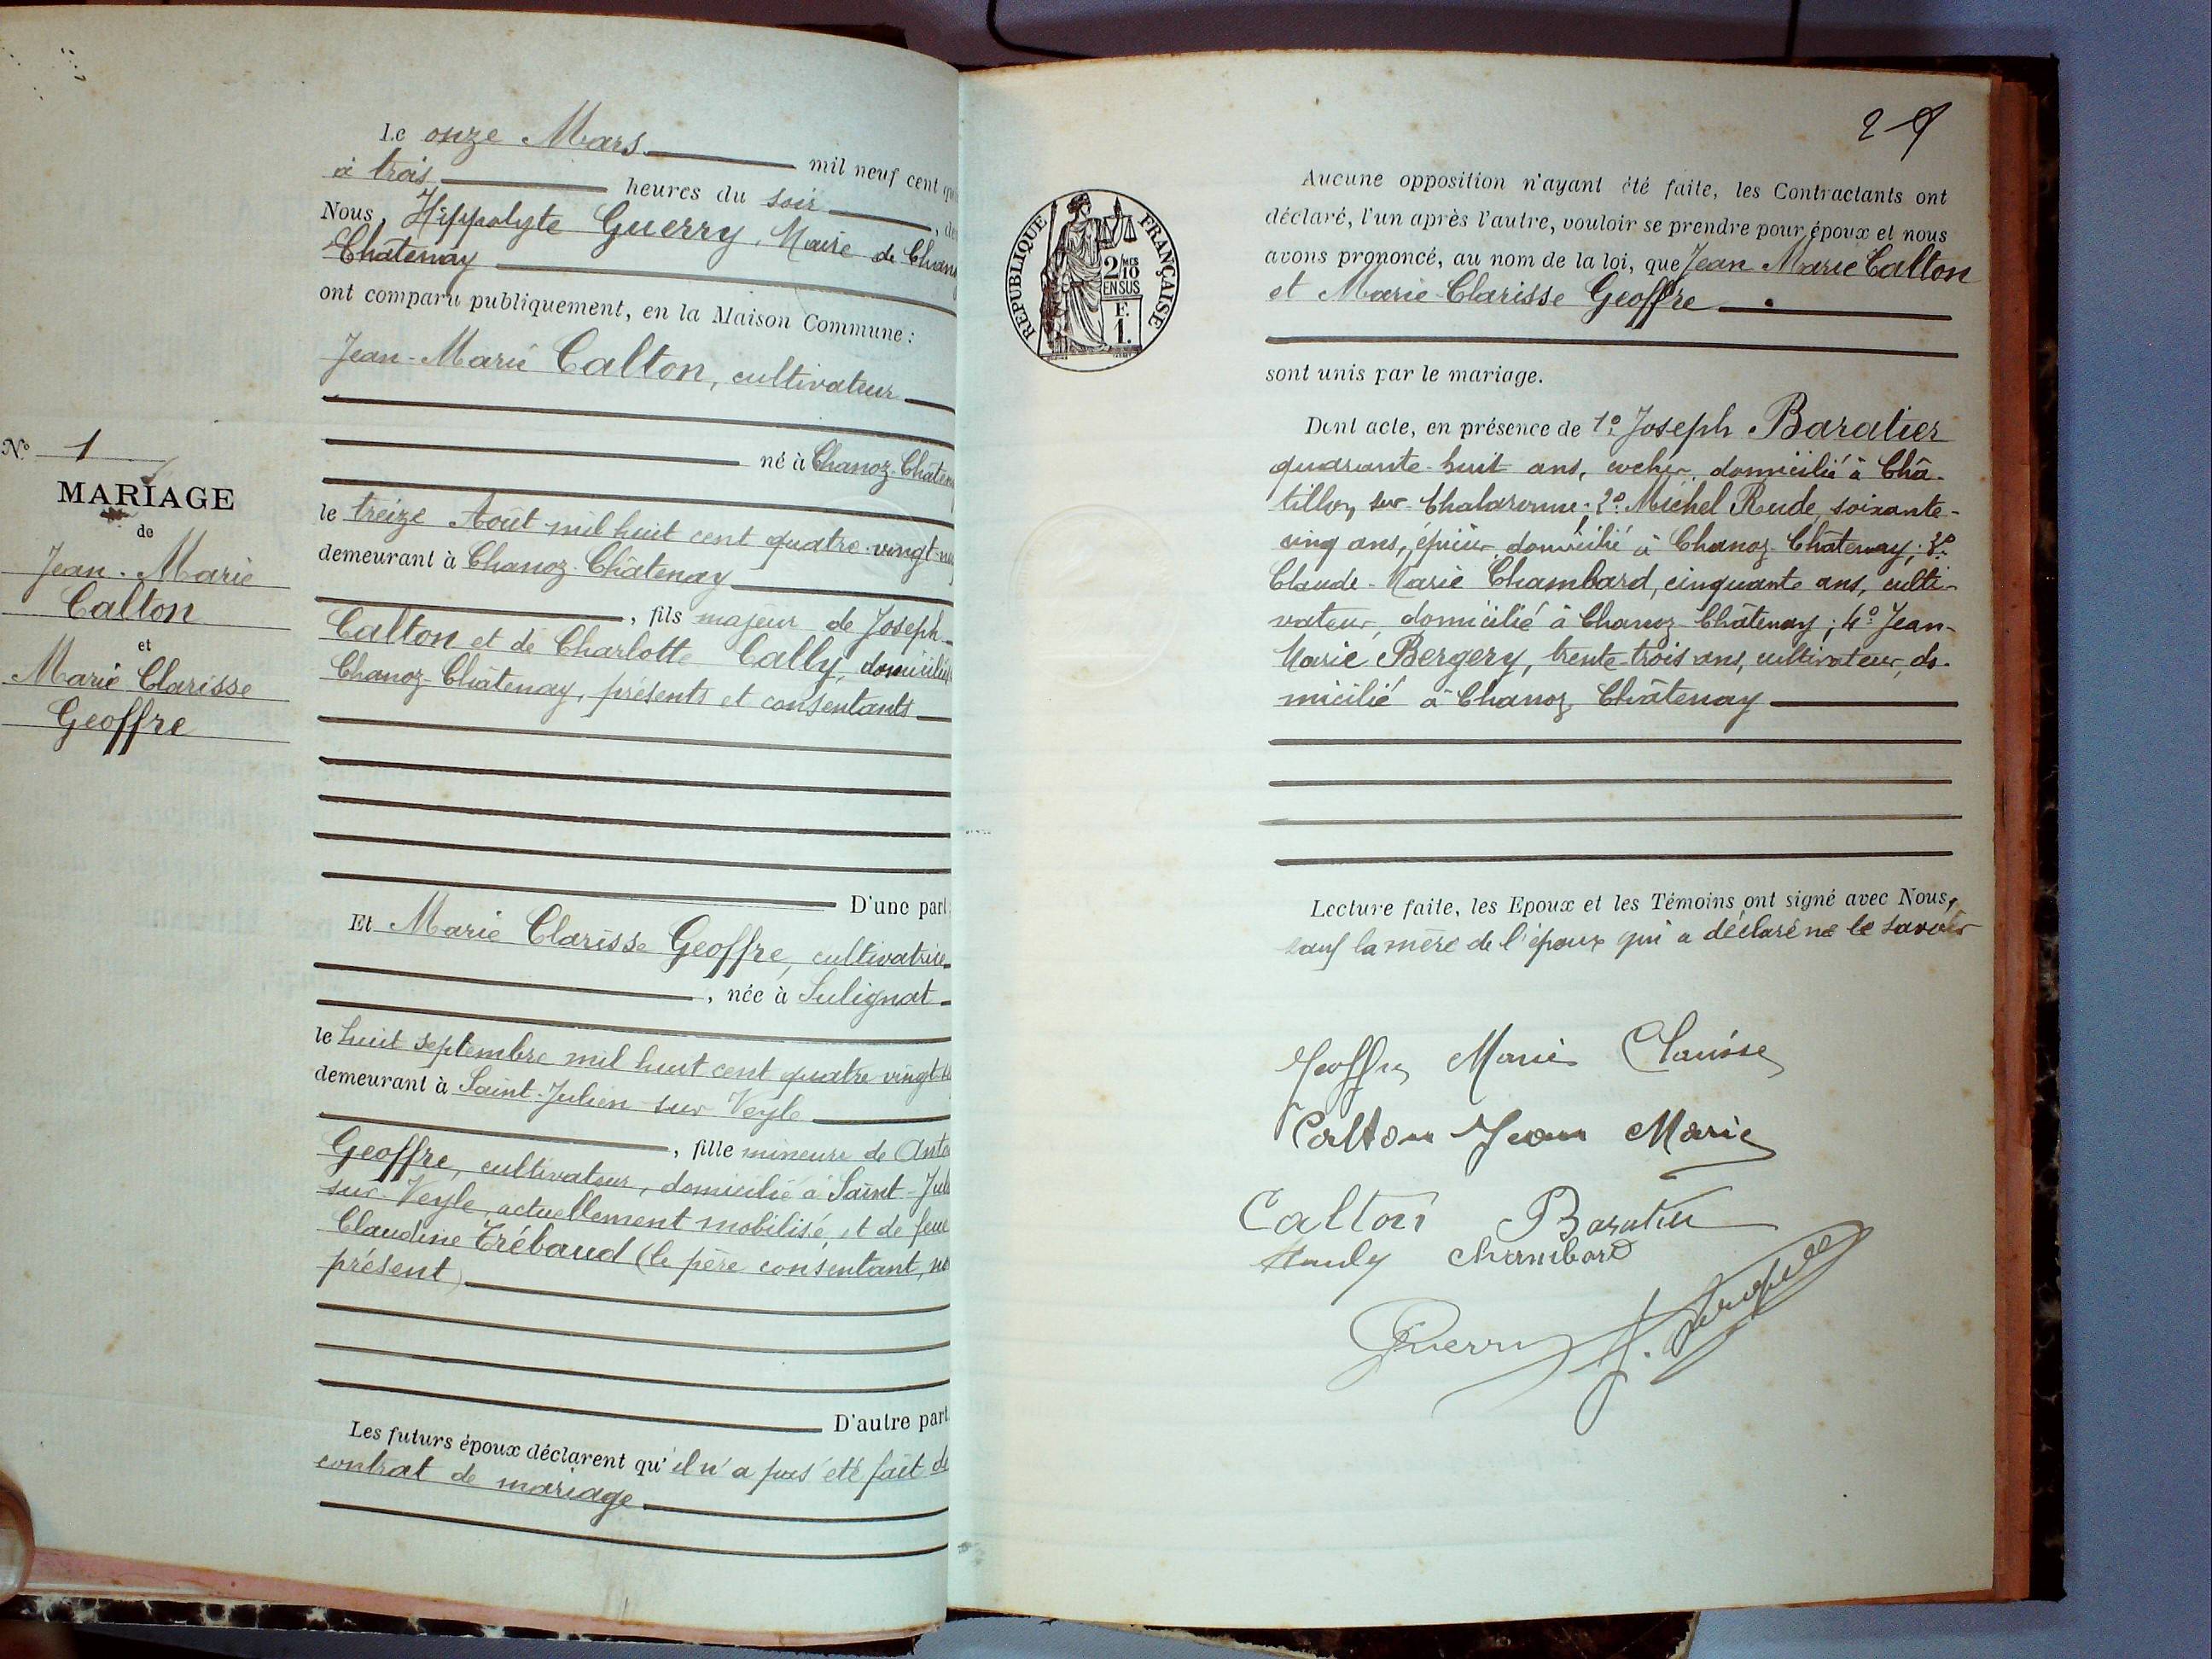 Le onze Mars mil neuf cent
à trois heures du soir
Nous, Hippolyte Guerry, Maire de
Châtenay
ont comparu publiquement, en la Maison Commune :
Jean-Marie Calton, cultivateur
né à Chanoz-
le treize Août mil huit cent quatre-vingt-
demeurant à Chanoz-Châtenay
, fils majeur de Joseph
Calton et de Charlotte Cally, domiciliés
Chanoz-Châtenay, présents et consentants
D'une part
Et Marie Clarisse Geoffre, cultivatrice
, née à Sulignat
le huit septembre mil huit cent quatre vingt
demeurant à Saint-Julien sur Veyle
, fille mineure de
Geoffre, cultivateur, domicilié à Saint-
sur-Veyle, actuellement mobilisé, et de feue
Claudine Trébaud (le père consentant,
présent)
D'autre part
Les futurs époux déclarent qu'il n'a pas été fait de
contrat de mariage
N° 1
MARIAGE
de
Jean-Marie
Calton
et
Marie Clarisse
Geoffre
2
REPUBLIQUE FRANÇAISE
2/10 MES
EN SUS
F.
1.
Aucune opposition n'ayant été faite, les Contractants ont
déclaré, l'un après l'autre, vouloir se prendre pour époux et nous
avons prononcé, au nom de la loi, que Jean Marie Calton
et Marie-Clarisse Geoffre
sont unis par le mariage.
Dont acte, en présence de 1º Joseph Baratier
quarante-huit ans, cocher, domicilié à Châ-
tillon sur Chalaronne; 2º Michel Rude, soixante-
cinq ans, épicier domicilié à Chanoz-Châtenay; 3º
Claude-Marie Chambard, cinquante ans, culti-
vateur, domicilié à Chanoz-Châtenay; 4º Jean-
Marie Bergery, trente-trois ans, cultivateur, do-
micilié à Chanoz Châtenay
Lecture faite, les Epoux et les Témoins ont signé avec Nous,
sauf la mère de l'époux qui a déclaré ne le savoir
Geoffre Marie Clarisse
Calton Jean Marie
Calton Baratier
Chambard
Guerry